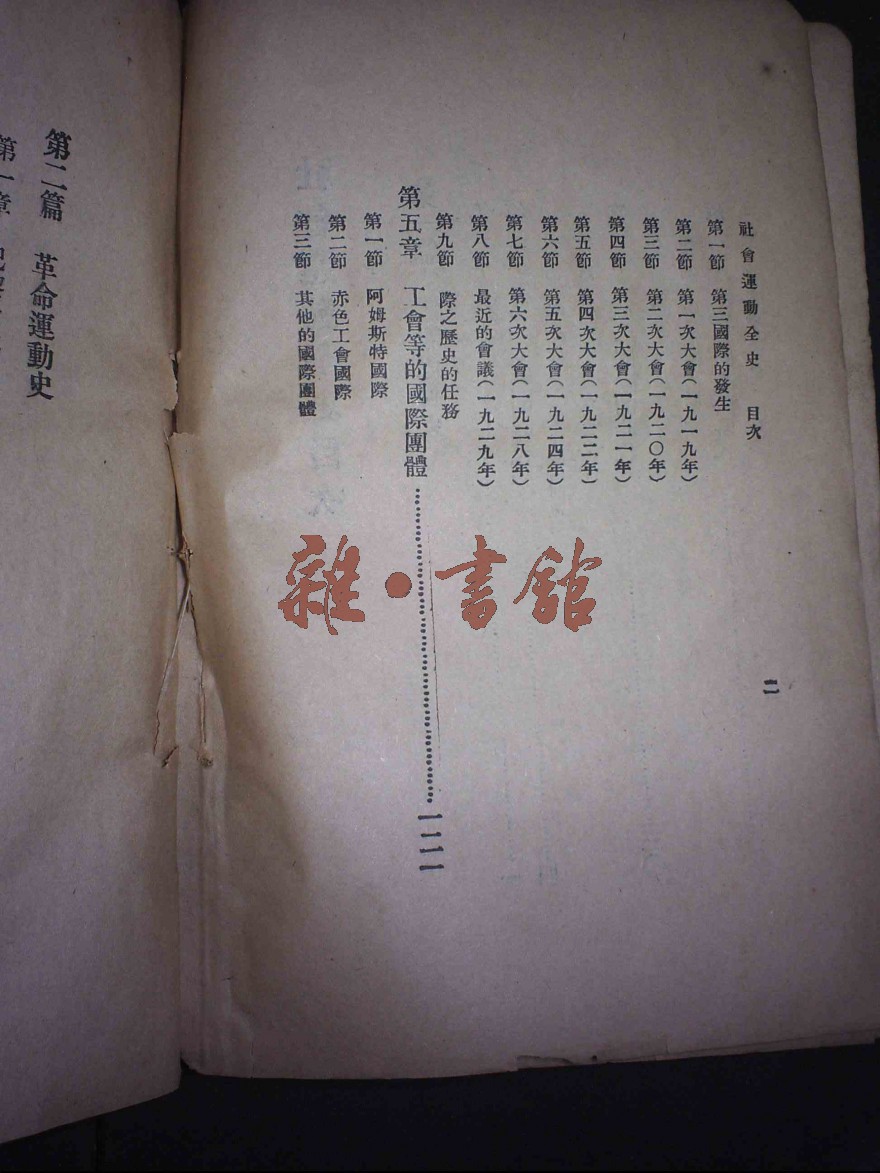 社會運動全史 目次
二
第一節 第三國際的發生
第二節 第一次大會(一九一九年)
第三節 第二次大會(一九二〇年)
第四節 第三次大會(一九二一年)
第五節 第四次大會(一九二二年)
第六節 第五次大會(一九二四年)
第七節 第六次大會(一九二八年)
第八節 最近的會議(一九二九年)
第九節 際之歷史的任務
第五章 工會等的國際團體
第一節 阿姆斯特國際
第二節 赤色工會國際
第三節 其他的國際團體
第二篇 革命運動史
第一章
雜·書館